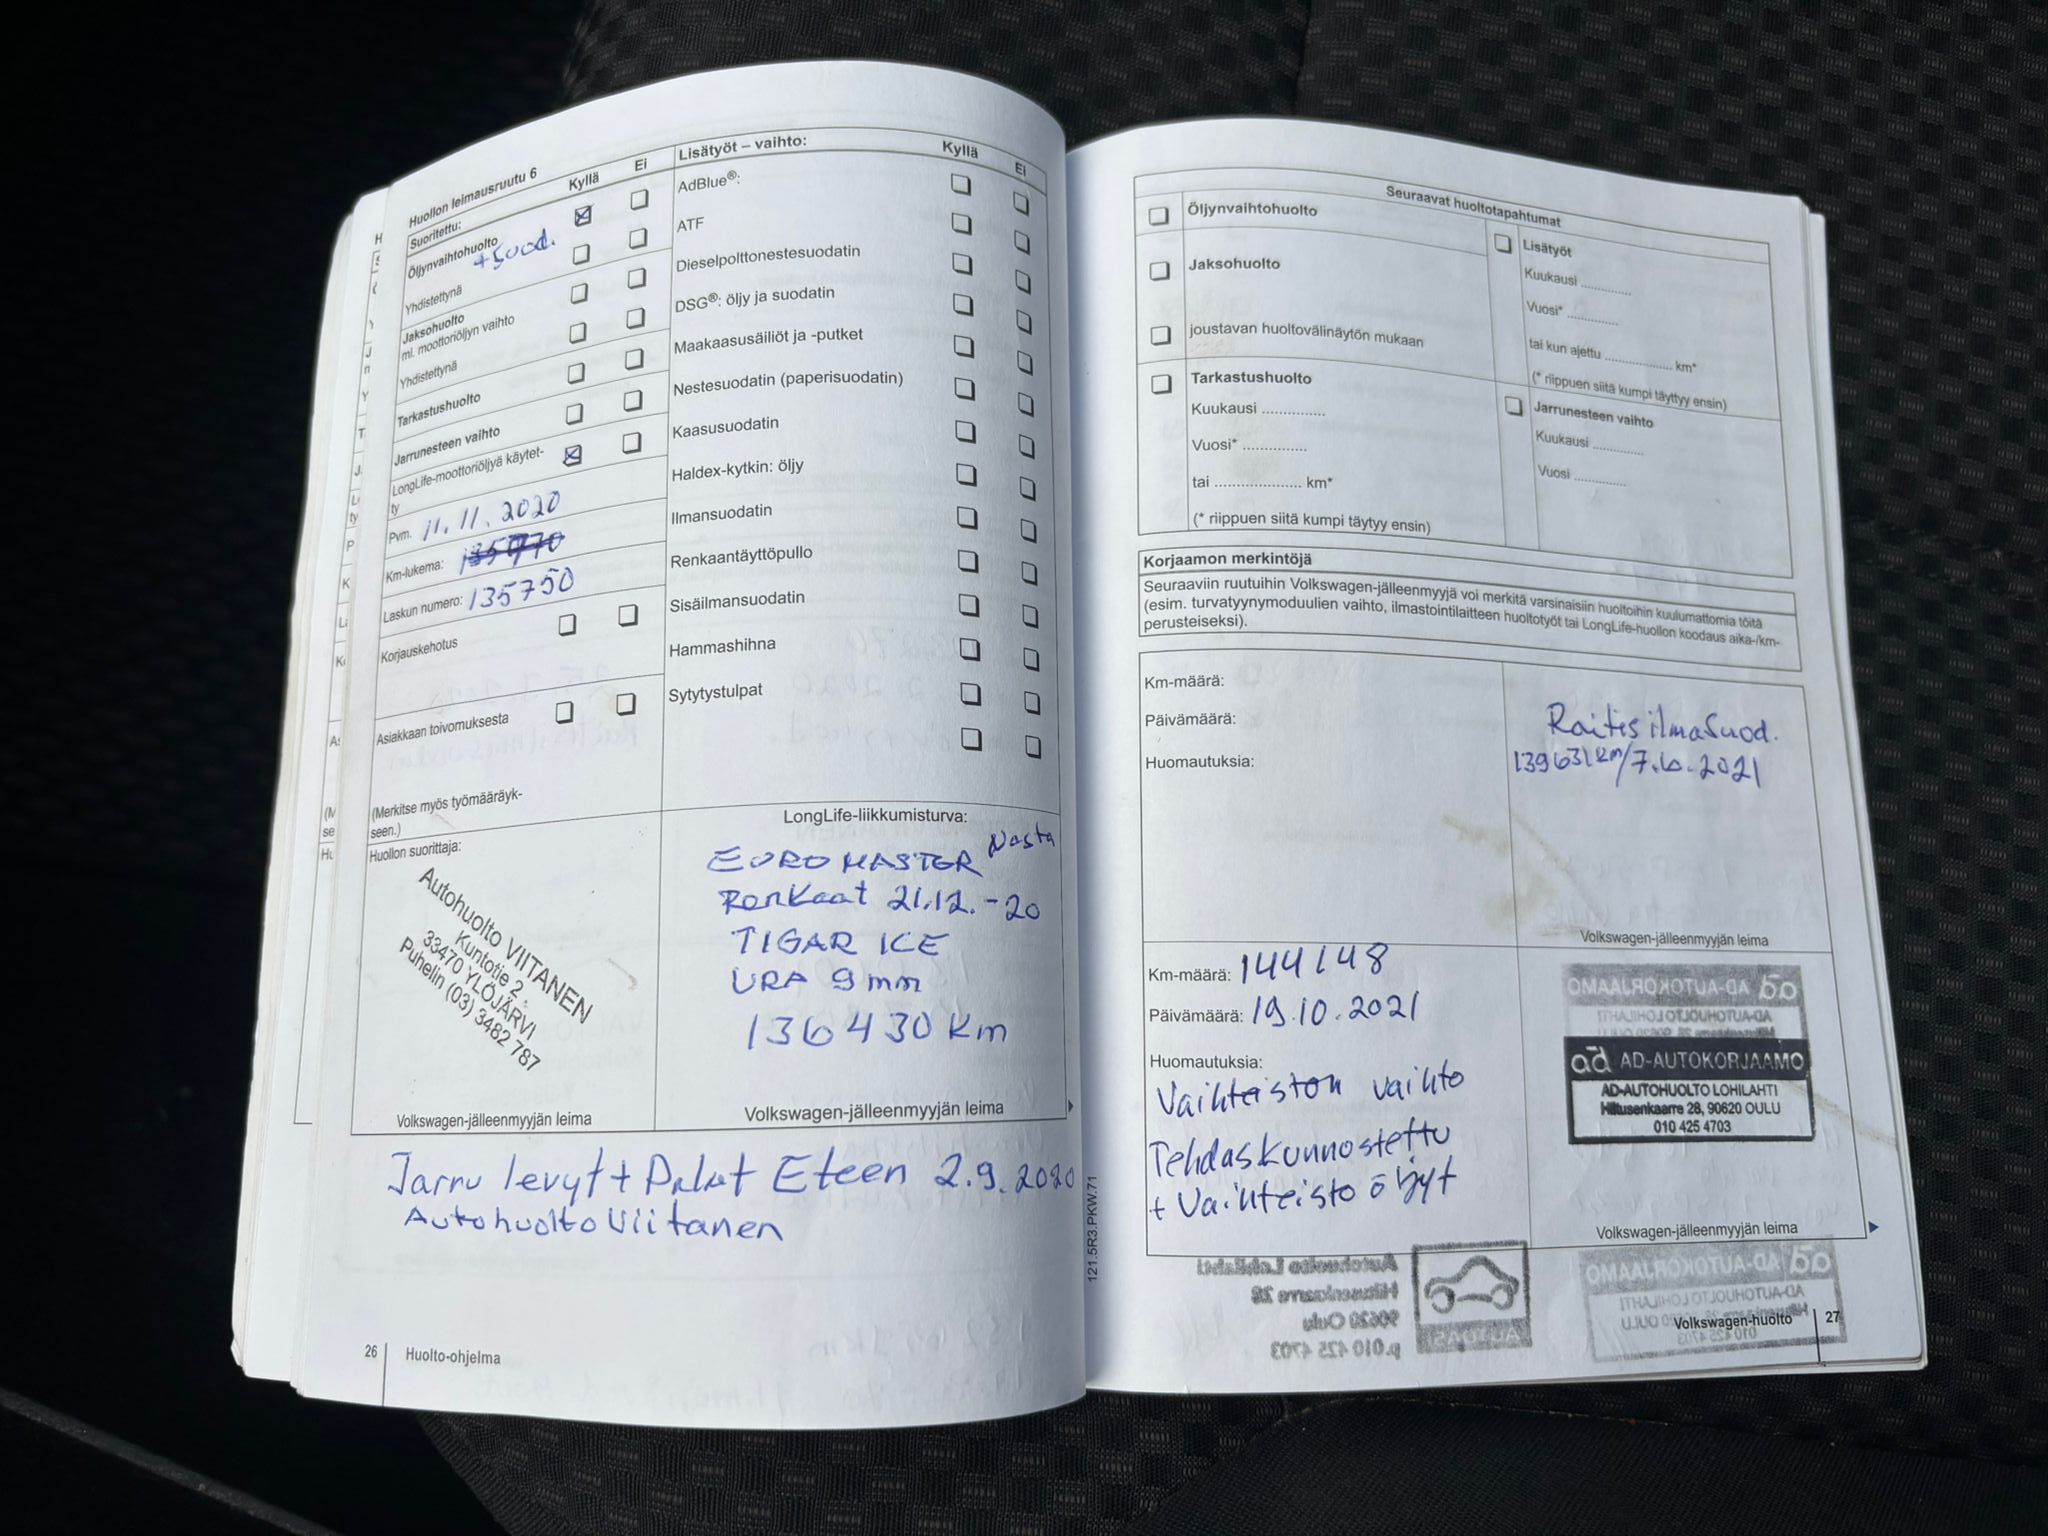 Huollon leimausruutu 6
Suoritettu:
Kyllä
Ei
Öljynvaihtohuolto
+ Suod.
Yhdistettynä
Jaksohuolto
ml. moottoriöljyn vaihto
Yhdistettynä
Tarkastushuolto
Jarrunesteen vaihto
LongLife-moottoriöljyä käytet-
ty
Pvm. 11.11.2020
Km-lukema:
Laskun numero: 135750
Korjauskehotus
Asiakkaan toivomuksesta
(Merkitse myös työmääräyk-
seen.)
Lisätyöt – vaihto:
Kyllä
Ei
AdBlue®:
ATF
Dieselpolttonestesuodatin
DSG®: öljy ja suodatin
Maakaasusäiliöt ja -putket
Nestesuodatin (paperisuodatin)
Kaasusuodatin
Haldex-kytkin: öljy
Ilmansuodatin
Renkaantäyttöpullo
Sisäilmansuodatin
Hammashihna
Sytytystulpat
Huollon suorittaja:
Autohuolto VIITANEN
Kuntotie 2
33470 YLÖJÄRVI
Puhelin (03) 3482 787
Volkswagen-jälleenmyyjän leima
LongLife-liikkumisturva:
EUROMASTER Nasta
Renkaat 21.12.-20
TIGAR ICE
URA 9mm
136430 Km
Volkswagen-jälleenmyyjän leima
Jarru levyt + Palat Eteen 2.9.2020
Autohuolto Viitanen
121.5R3.PKW.71
26
Huolto-ohjelma
Seuraavat huoltotapahtumat
Öljynvaihtohuolto
Jaksohuolto
joustavan huoltovälinäytön mukaan
Tarkastushuolto
Kuukausi ...............
Vuosi* ...............
tai .................... km*
(* riippuen siitä kumpi täytyy ensin)
Lisätyöt
Kuukausi ............
Vuosi* ............
tai kun ajettu ................ km*
(* riippuen siitä kumpi täyttyy ensin)
Jarrunesteen vaihto
Kuukausi ............
Vuosi ............
Korjaamon merkintöjä
Seuraaviin ruutuihin Volkswagen-jälleenmyyjä voi merkitä varsinaisiin huoltoihin kuulumattomia töitä
(esim. turvatyynymoduulien vaihto, ilmastointilaitteen huoltotyöt tai LongLife-huollon koodaus aika-/km-
perusteiseksi).
Km-määrä:
Päivämäärä:
Huomautuksia:
Raitisilmasuod.
139631km/7.6.2021
Volkswagen-jälleenmyyjän leima
Km-määrä: 144148
Päivämäärä: 19.10.2021
Huomautuksia:
Vaihteiston vaihto
Tehdaskunnostettu
+ Vaihteisto öljyt
ad AD-AUTOKORJAAMO
AD-AUTOHUOLTO LOHILAHTI
Hiltusenkaarre 28, 90620 OULU
010 425 4703
Volkswagen-jälleenmyyjän leima
Autohuolto Lohilahti
Hiltusenkaarre 28
90620 Oulu
p.010 425 4703
Volkswagen-huolto
27